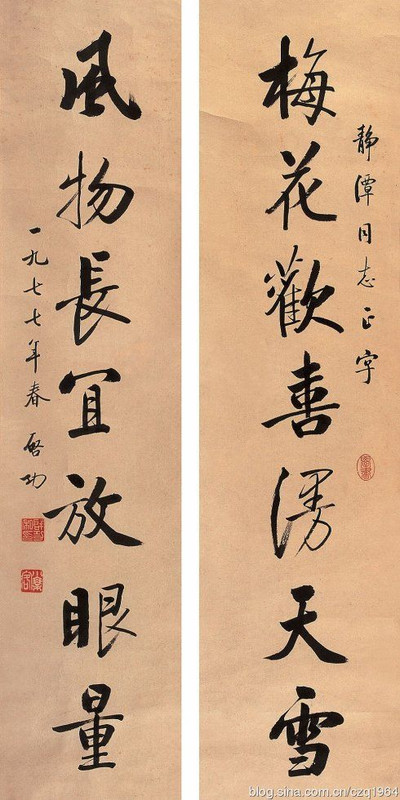 静潭同志正字
梅花歡喜漫天雪
風物長宜放眼量
一九七七年春 啓功
blog.sina.com.cn/czq1964